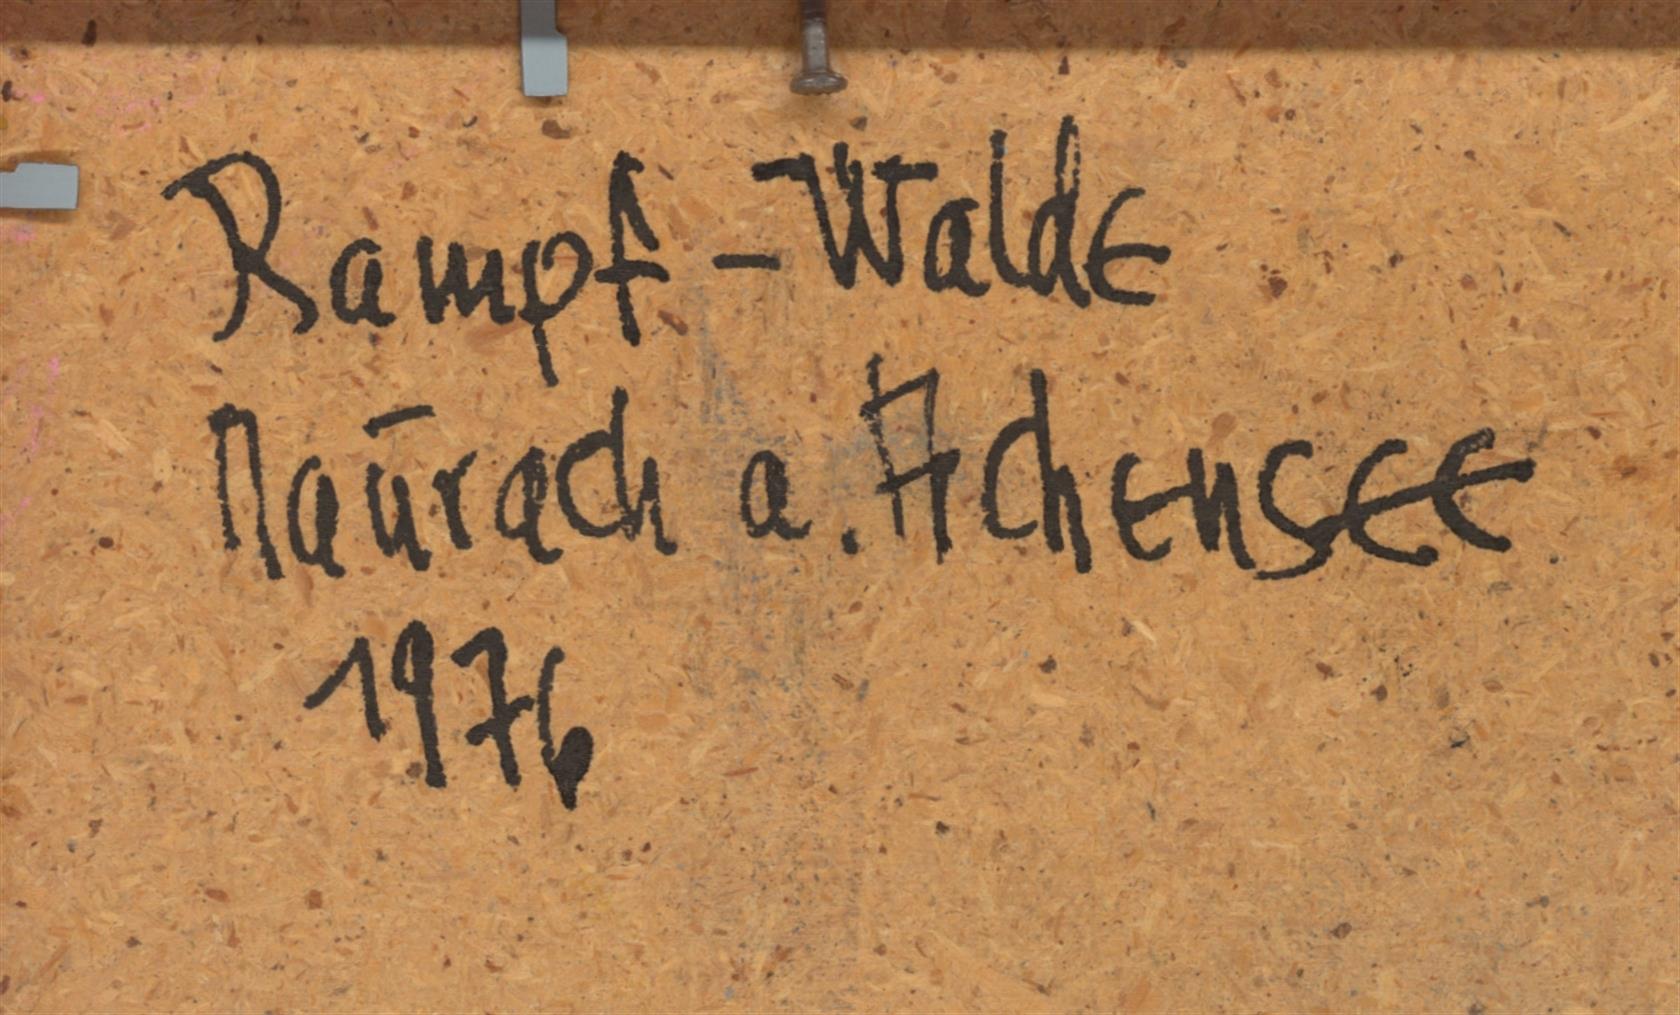 Rampf-Walde
Maurach a. Achensee
1976